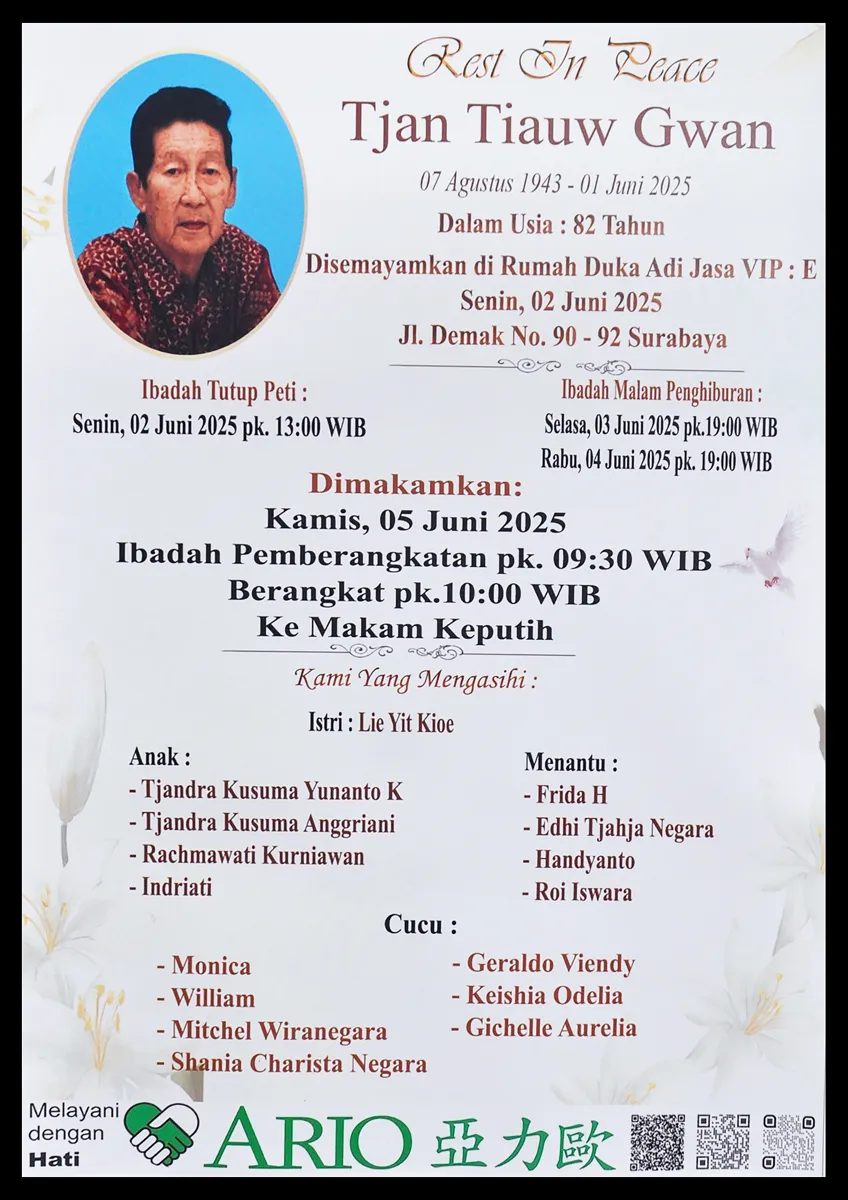 Rest In Peace
Tjan Tiauw Gwan
07 Agustus 1943 - 01 Juni 2025
Dalam Usia : 82 Tahun
Disemayamkan di Rumah Duka Adi Jasa VIP : E
Senin, 02 Juni 2025
Jl. Demak No. 90 - 92 Surabaya
Ibadah Tutup Peti :
Senin, 02 Juni 2025 pk. 13:00 WIB
Ibadah Malam Penghiburan :
Selasa, 03 Juni 2025 pk.19:00 WIB
Rabu, 04 Juni 2025 pk. 19:00 WIB
Dimakamkan:
Kamis, 05 Juni 2025
Ibadah Pemberangkatan pk. 09:30 WIB
Berangkat pk.10:00 WIB
Ke Makam Keputih
Kami Yang Mengasihi :
Istri : Lie Yit Kioe
Anak :
- Tjandra Kusuma Yunanto K
- Tjandra Kusuma Anggriani
- Rachmawati Kurniawan
- Indriati
Menantu :
- Frida H
- Edhi Tjahja Negara
- Handyanto
- Roi Iswara
Cucu :
- Monica
- William
- Mitchel Wiranegara
- Shania Charista Negara
- Geraldo Viendy
- Keishia Odelia
- Gichelle Aurelia
Melayani
dengan
Hati
ARIO 亞力歐